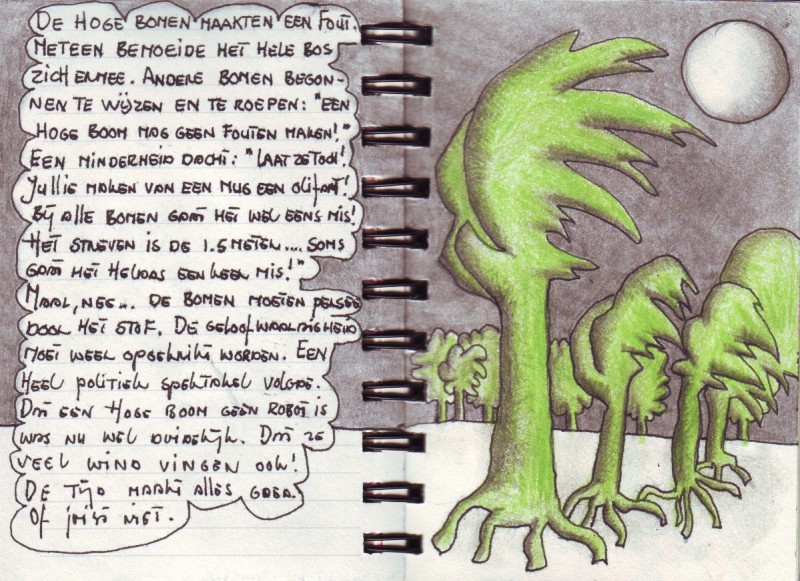 De hoge bomen maakten een fout.
Meteen bemoeide het hele bos
zich ermee. Andere bomen begon-
nen te wijzen en te roepen: "Een
hoge boom mag geen fouten maken!"
Een minderheid dacht: "Laat ze toch!
Jullie maken van een mug een olifant!
Bij alle bomen gaat het wel eens mis!
Het streven is de 1.5 meter.... soms
gaat het helaas een keer mis!"
Maar, nee... de bomen moesten persé
door het stof. De geloofwaardigheid
moet weer opgekrikt worden. Een
heel politiek spektakel volgde.
Dat een hoge boom geen robot is
was nu wel duidelijk. Dat ze
veel wind vingen ook!
De tijd maakt alles goed.
Of juist niet.